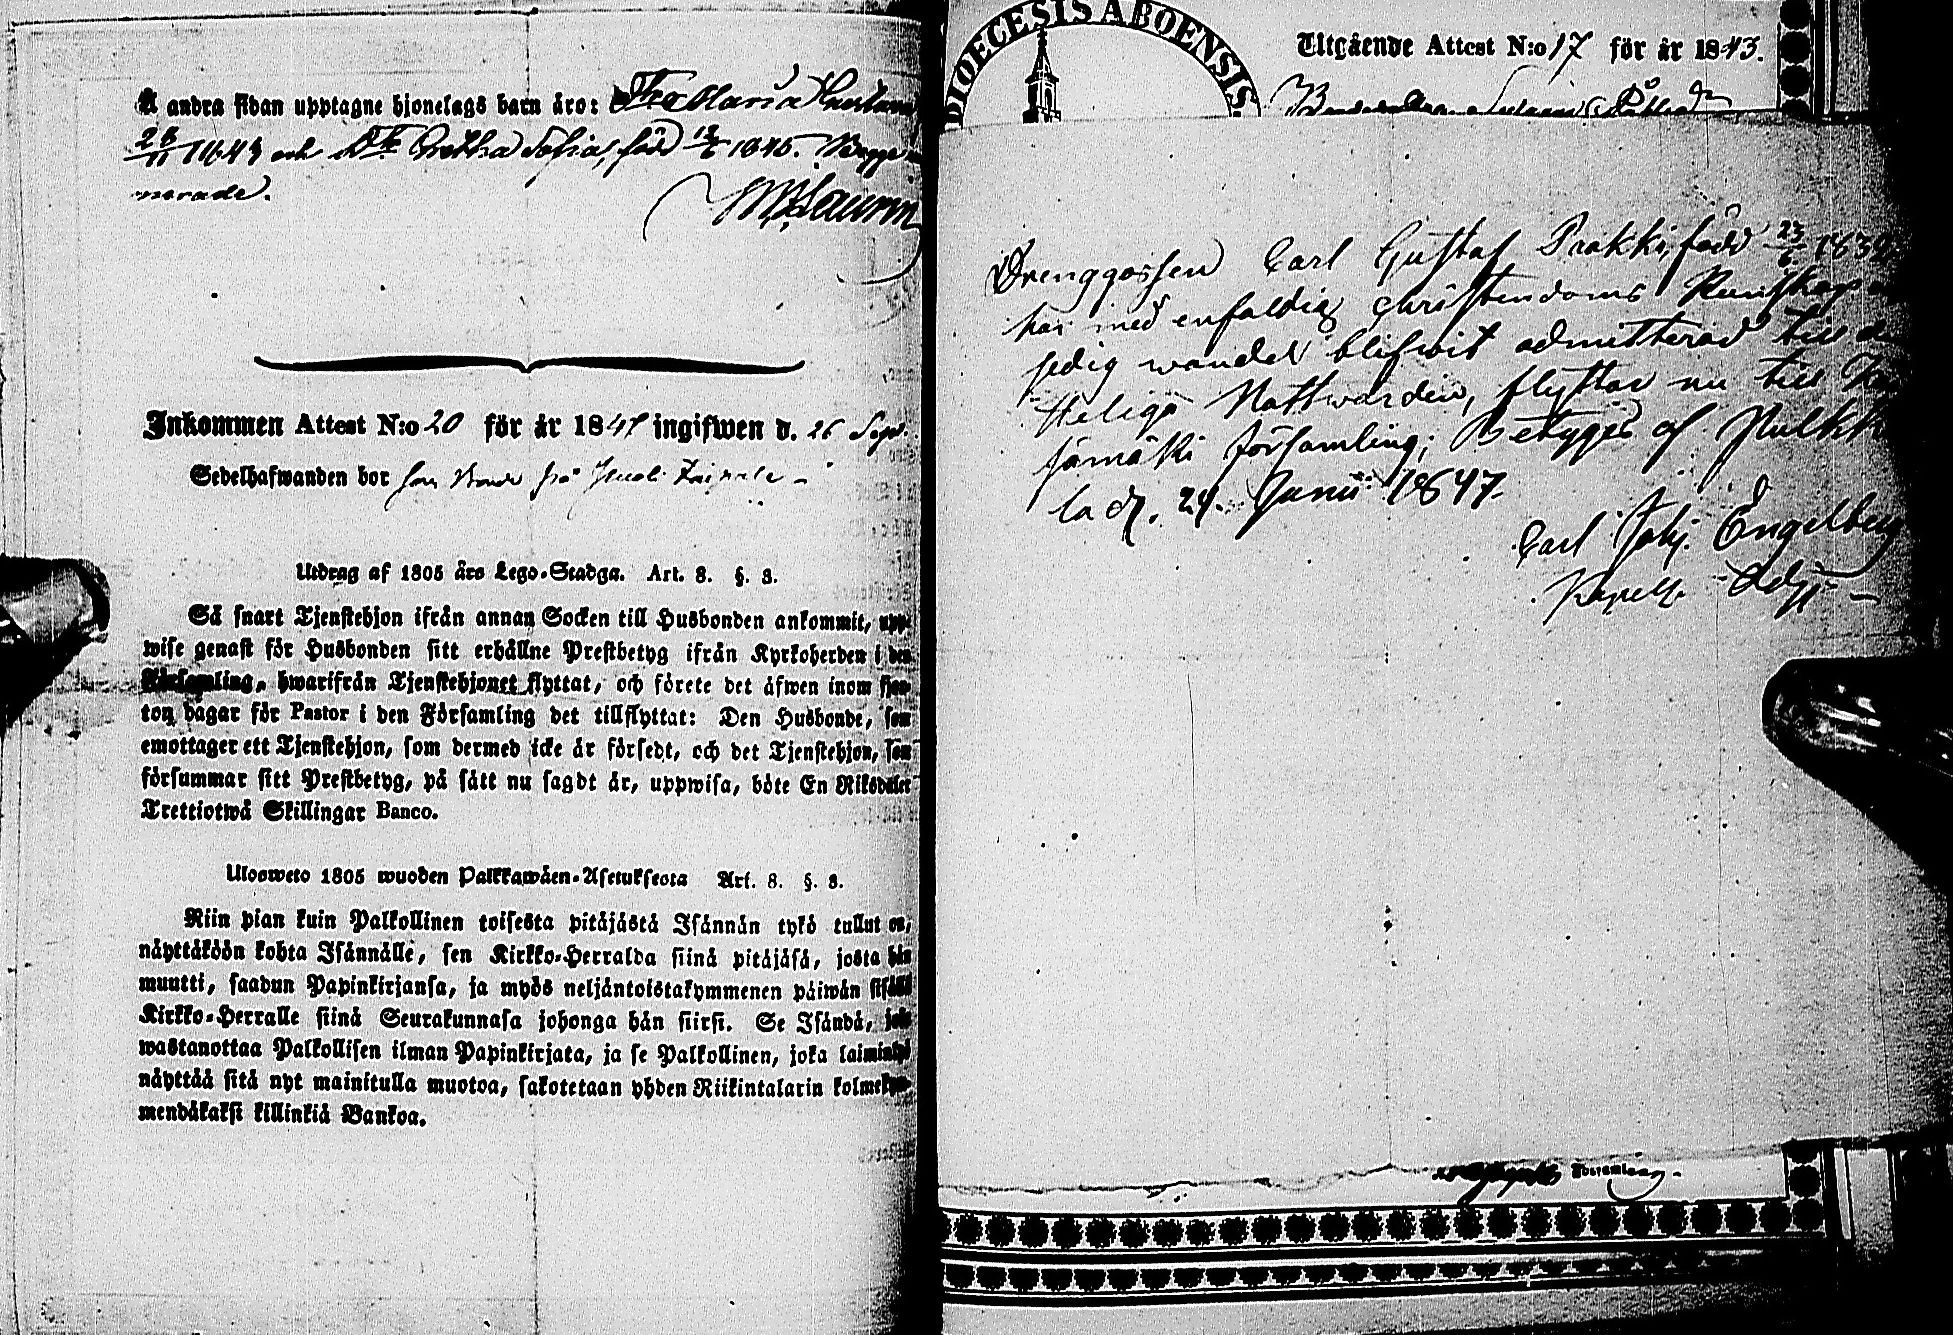 Å andra sidan upptagne hjonelags barn äro: Maria
23/11 1843 och Gretha Sofia, född 12/6 1845. Begge
nerade.
Inkommen Attest N:o 20 för år 1847 ingifwen d. 26 Sept.
Sedelhafwanden bor
Utdrag af 1805 års Lego-Stadga. Art. 8. §. 3.
Så snart Tjenstehjon ifrån annan Socken till Husbonden ankommit, upp-
wise genast för Husbonden sitt erhållne Prestbetyg ifrån Kyrkoherden i den
Församling, hwarifrån Tjenstehjonet flyttat, och förete det äfwen inom fjor-
ton dagar för Pastor i den Församling det tillflyttat: Den Husbonde, som
emottager ett Tjenstehjon, som dermed icke är försedt, och det Tjenstehjon, som
försummar sitt Prestbetyg, på sätt nu sagdt är, uppwisa, böte En Riksdaler
Trettiotwå Skillingar Banco.
Ulosweto 1805 wuoden Palkkawäen-Asetuksesta Art. 8. §. 3.
Niin pian kuin Palkollinen toisesta pitäjästä Isännän tykö tullut on,
näyttäköön kohta Isännälle, sen Kirkko-Herralda siinä pitäjäsä, josta hän
muutti, saadun Papinkirjansa, ja myös neljäntoistakymmenen päiwän sisällä
Kirkko-Herralle siinä Seurakunnasa johonga hän siirsi. Se Isändä, joka
wastanottaa Palkollisen ilman Papinkirjata, ja se Palkollinen, joka laiminlyö
näyttää sitä nyt mainitulla muotoa, sakotetaan yhden Riikintalarin kolmekym-
mendäkaksi killinkiä Bankoa.
DIOECESIS ABOENSIS.
Utgående Attest N:o 17 för år 1843.
Drenggossen Carl Gustaf Prakki, född 23/6 1832
har med enfaldig christendoms Kunskap
sedig wandel blifwit admitterad till d
Heliga Nattwarden, flyttar nu till
jämäki församling; Betygas af Pulkki
la d. 24 Junii 1847.
Carl Joh. Engelberg
Kapell. Adj.
Församling